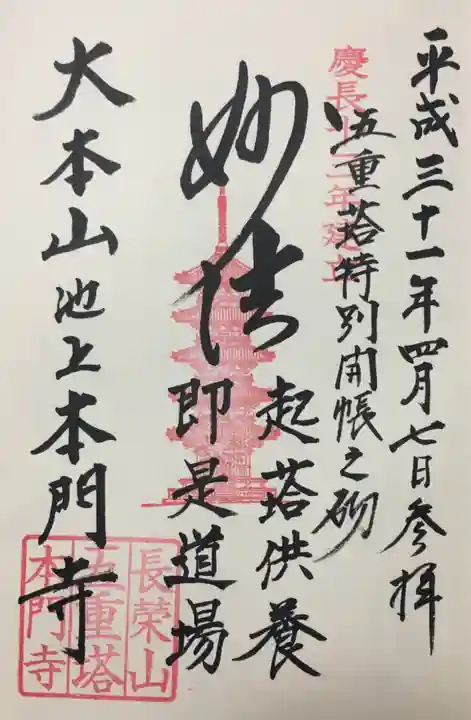 平成三十一年四月七日参拝
慶長十二年建立
五重塔特別開帳之砌
妙法
起塔供養
即是道場
大本山池上本門寺
長榮山
五重塔
本門寺